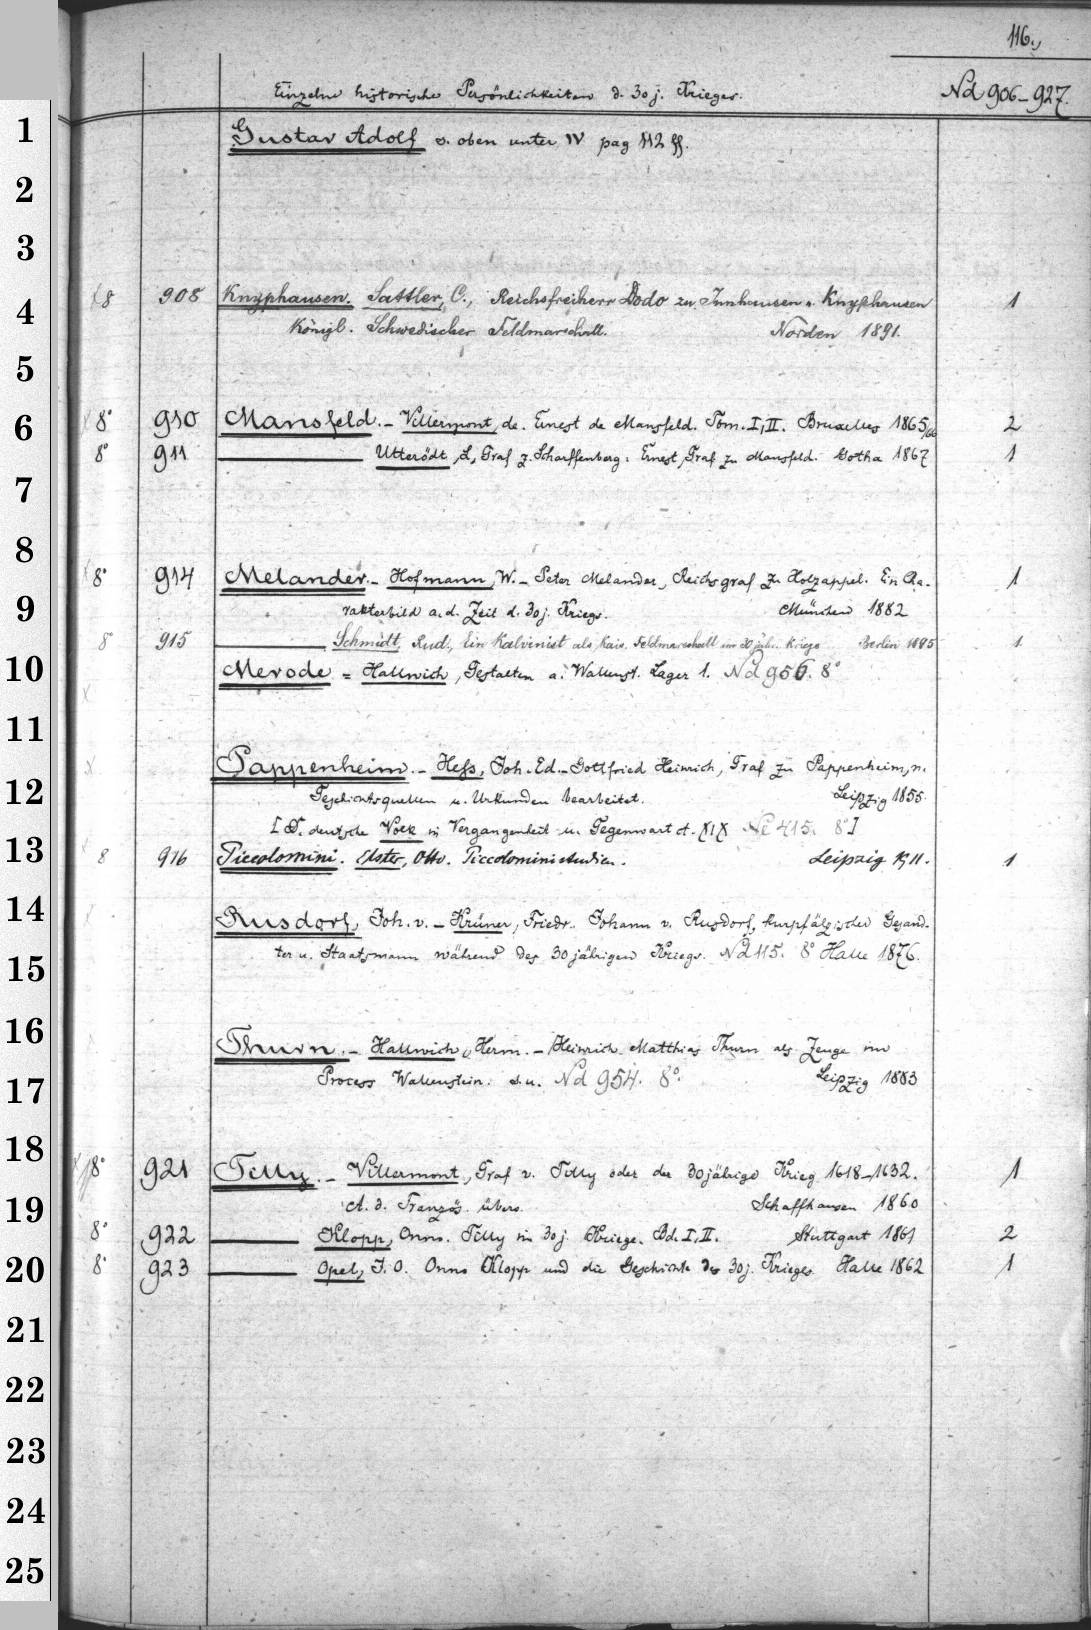 116.
Einzelne historische Persönlichkeiten d. 30 j. Krieges.
Nd 906–927.
1
Gustav Adolf s. oben unter IV pag 112 ff.
2
3
8 908 Knyphausen. Sattler, C., Reichsfreiherr Dodo zu Innhausen u. Knyphausen 1
4
Königl. Schwedischer Feldmarschall. Norden 1891.
5
8° 910 Mansfeld. – Villermont, de. Ernest de Mansfeld. Tom. I, II. Bruxelles 1865/66 2
6
8° 911 Utterödt, L, Graf z. Scharffenberg: Ernest, Graf zu Mansfeld. Gotha 1867 1
7
8
8° 914 Melander. – Hofmann, W. – Peter Melander, Reichsgraf zu Holzappel. Ein Cha- 1
9
rakterbild a. d. Zeit d. 30 j. Kriegs. München 1882
8° 915 Schmidt, Rud., Ein Kalvinist als Kais. Feldmarschall im 30 jähr. Kriege Berlin 1895 1
10
Merode = Hallwich, Gestalten a. Wallenst. Lager 1. Nd 956. 8°
11
Pappenheim. – Hess, Joh. Ed. – Gottfried Heinrich, Graf zu Pappenheim, n.
12
Geschichtsquellen u. Urkunden bearbeitet. Leipzig 1855.
[D. deutsche Volk in Vergangenheit u. Gegenwart XIX Ne 415. 8°]
13
8 916 Piccolomini. Elster, Otto. Piccoloministudien. Leipzig 1911. 1
14
Rusdorf, Joh. v. – Krüner, Friedr. Johann v. Rusdorf, kurpfälzischer Gesand-
15
ter u. Staatsmann während des 30 jährigen Kriegs. Nd 115. 8° Halle 1876.
16
Thurn. – Hallwich, Herm. – Heinrich Matthias Thurn als Zeuge im
17
Process Wallenstein. s. u. Nd 954. 8°. Leipzig 1883
18
8° 921 Tilly. – Villermont, Graf v. Tilly oder der 30jährige Krieg 1618–1632. 1
19
A. d. Französ. übers. Schaffhausen 1860
8° 922 Klopp, Onno. Tilly im 30 j. Kriege. Bd. I, II. Stuttgart 1861 2
20
8° 923 Opel, J. O. Onno Klopp und die Geschichte des 30 j. Krieges Halle 1862 1
21
22
23
24
25